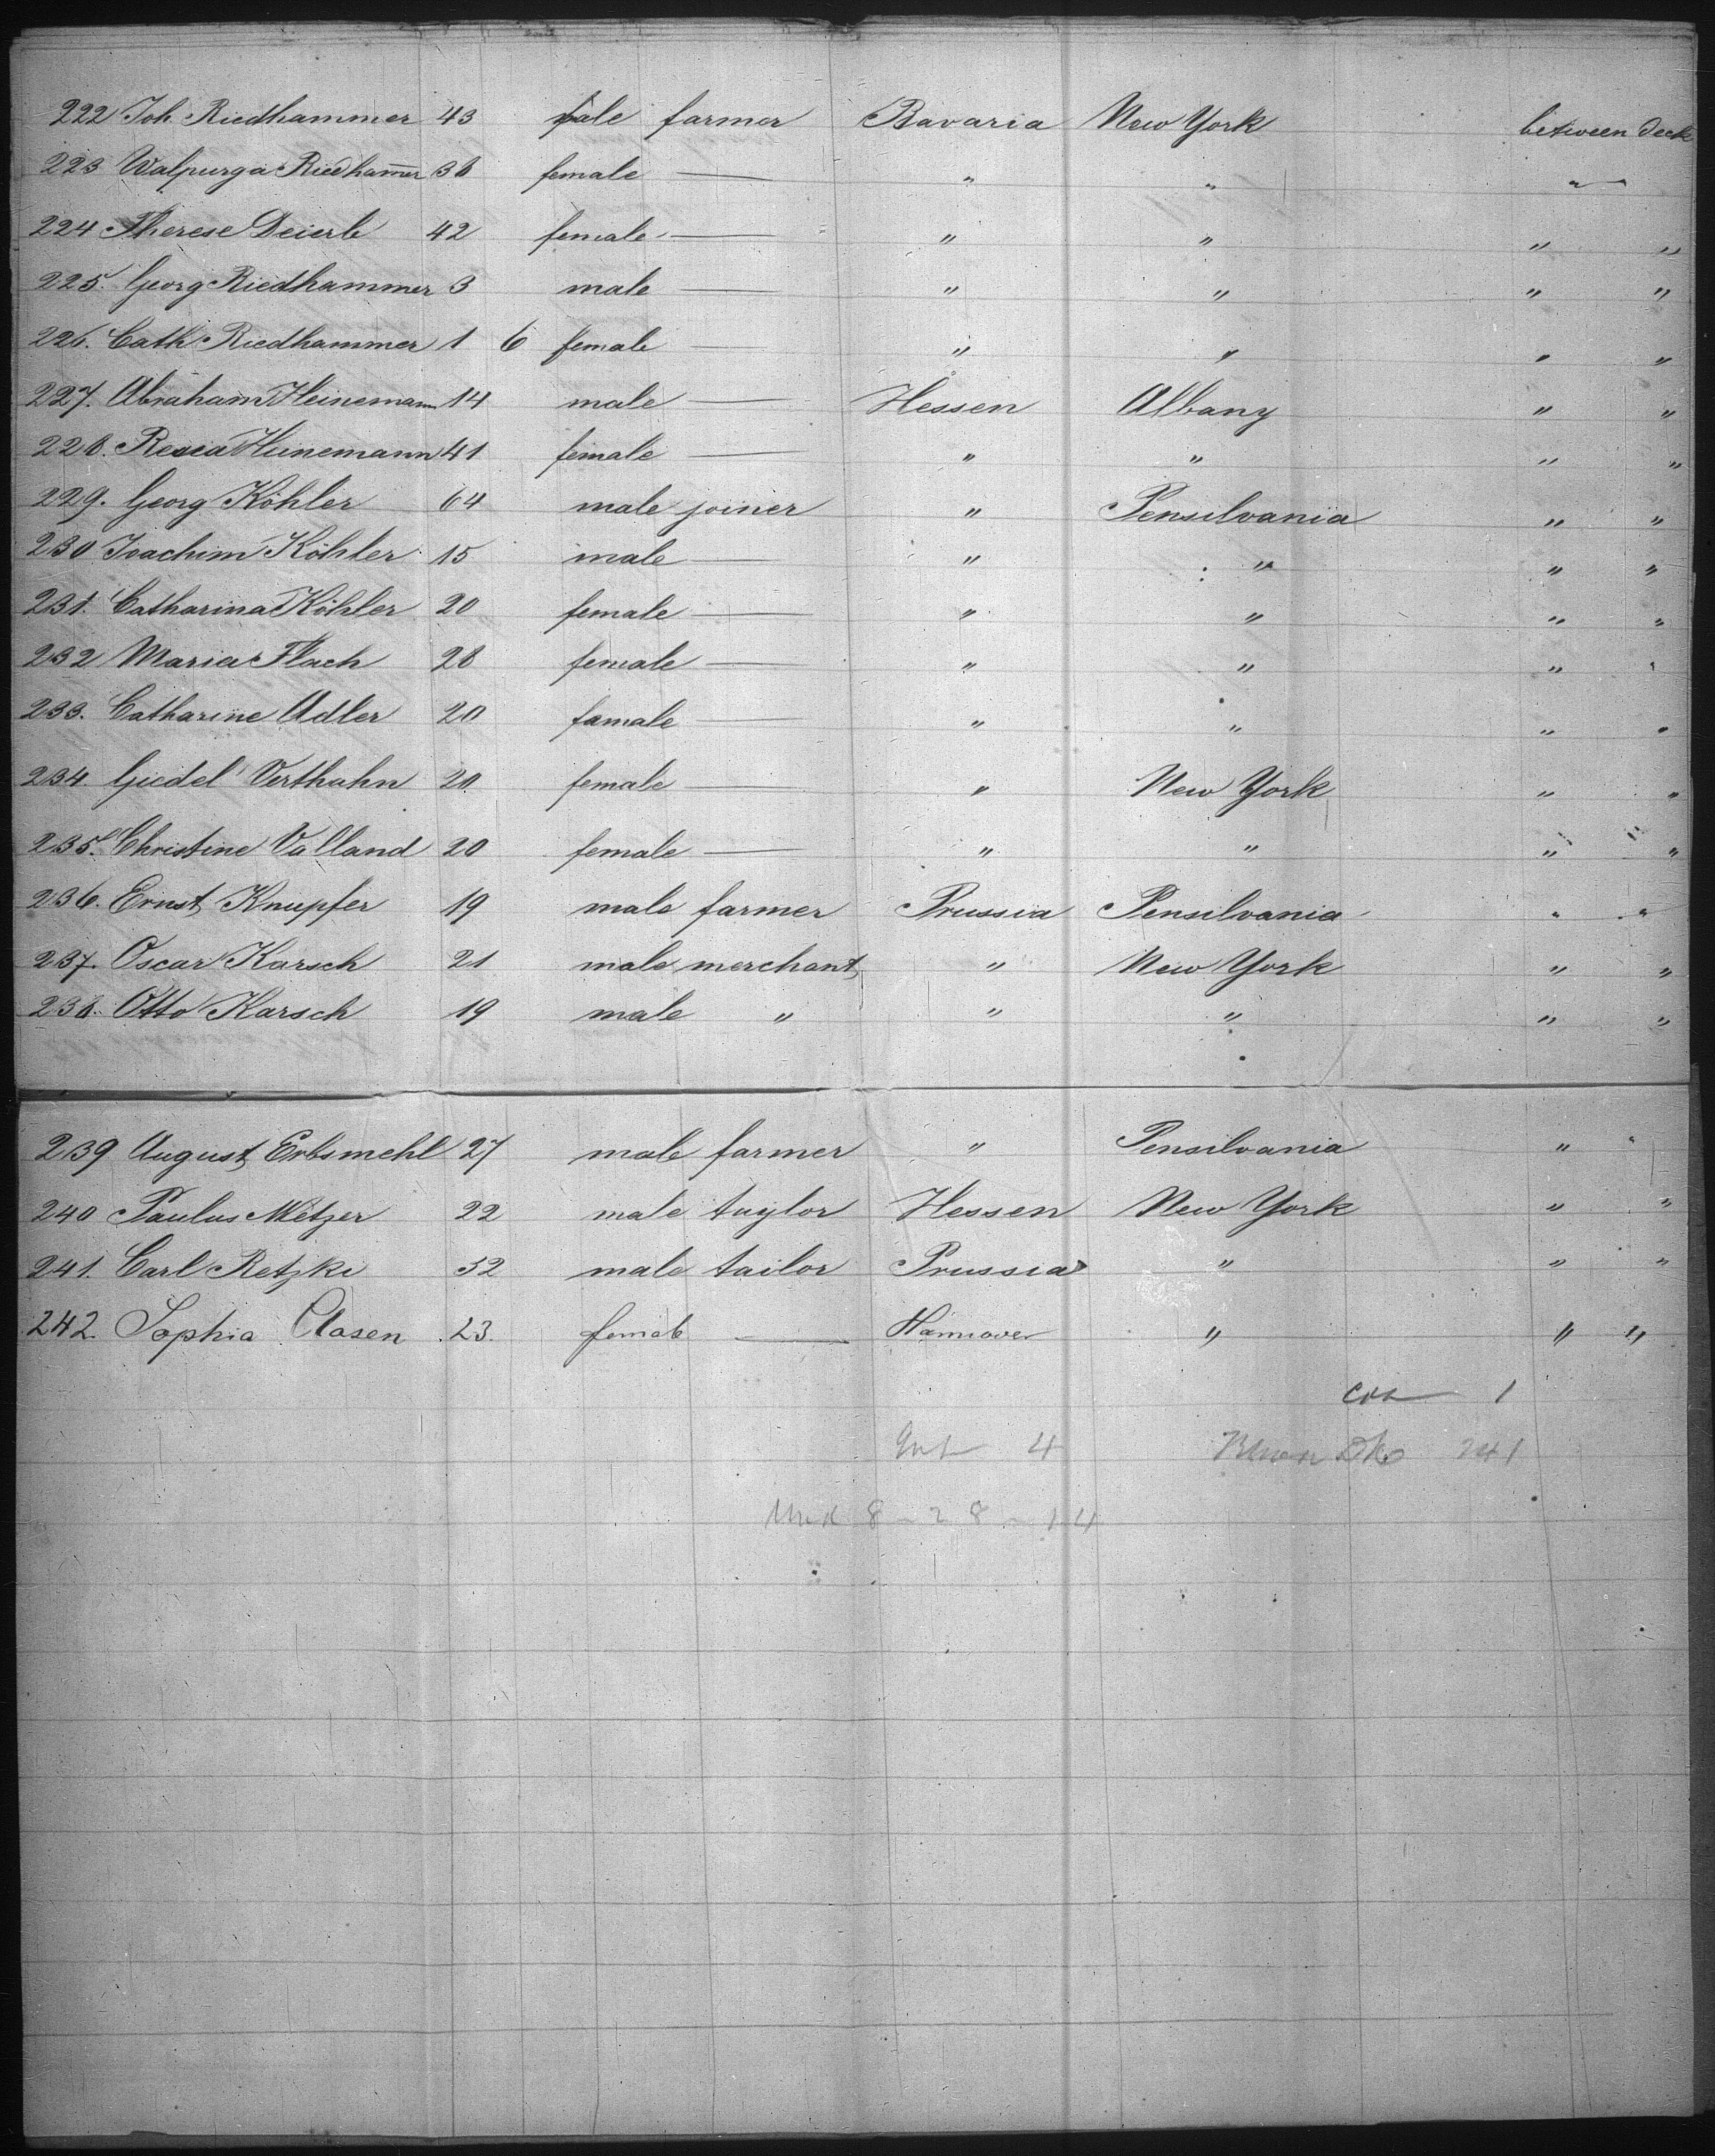 222 Joh. Riedhammer 43 male farmer Bavaria New York between deck
223 Walpurga Riedham̅er 38 female — " " "
224 Therese Deierl 42 female — " " " "
225. Georg Riedhammer 3 male — " " " "
226. Cath Riedhammer 1 6 female — " " " "
227. Abraham Heinemann 14 male — Hessen Albany " "
228. Heinemann 41 female — " " " "
229. Georg Köhler 64 male joiner " Pensilvania " "
230 Joachim Köhler 15 male — " " " "
231. Catharina Köhler 20 female — " " " "
232 Maria Flach 28 female — " " " "
233. Catharine Adler 20 famale — " " " "
234. Giedel Verthahn 20 female — " New York " "
235. Christine Valland 20 female — " " " "
236. Ernst Knupfer 19 male farmer Prussia Pensilvania " "
237. Oscar Karsch 21 male merchant " New York " "
238. Otto Karsch 19 male " " " " "
239 August Erbsmehl 27 male farmer " Pensilvania " "
240 Paulus Metzer 22 male taylor Hessen New York " "
241. Carl Retzke 32 male tailor Prussia " " "
242. Sophia Clasen 23. female — Hannover " " "
1
4 241
8 - 28 - 14